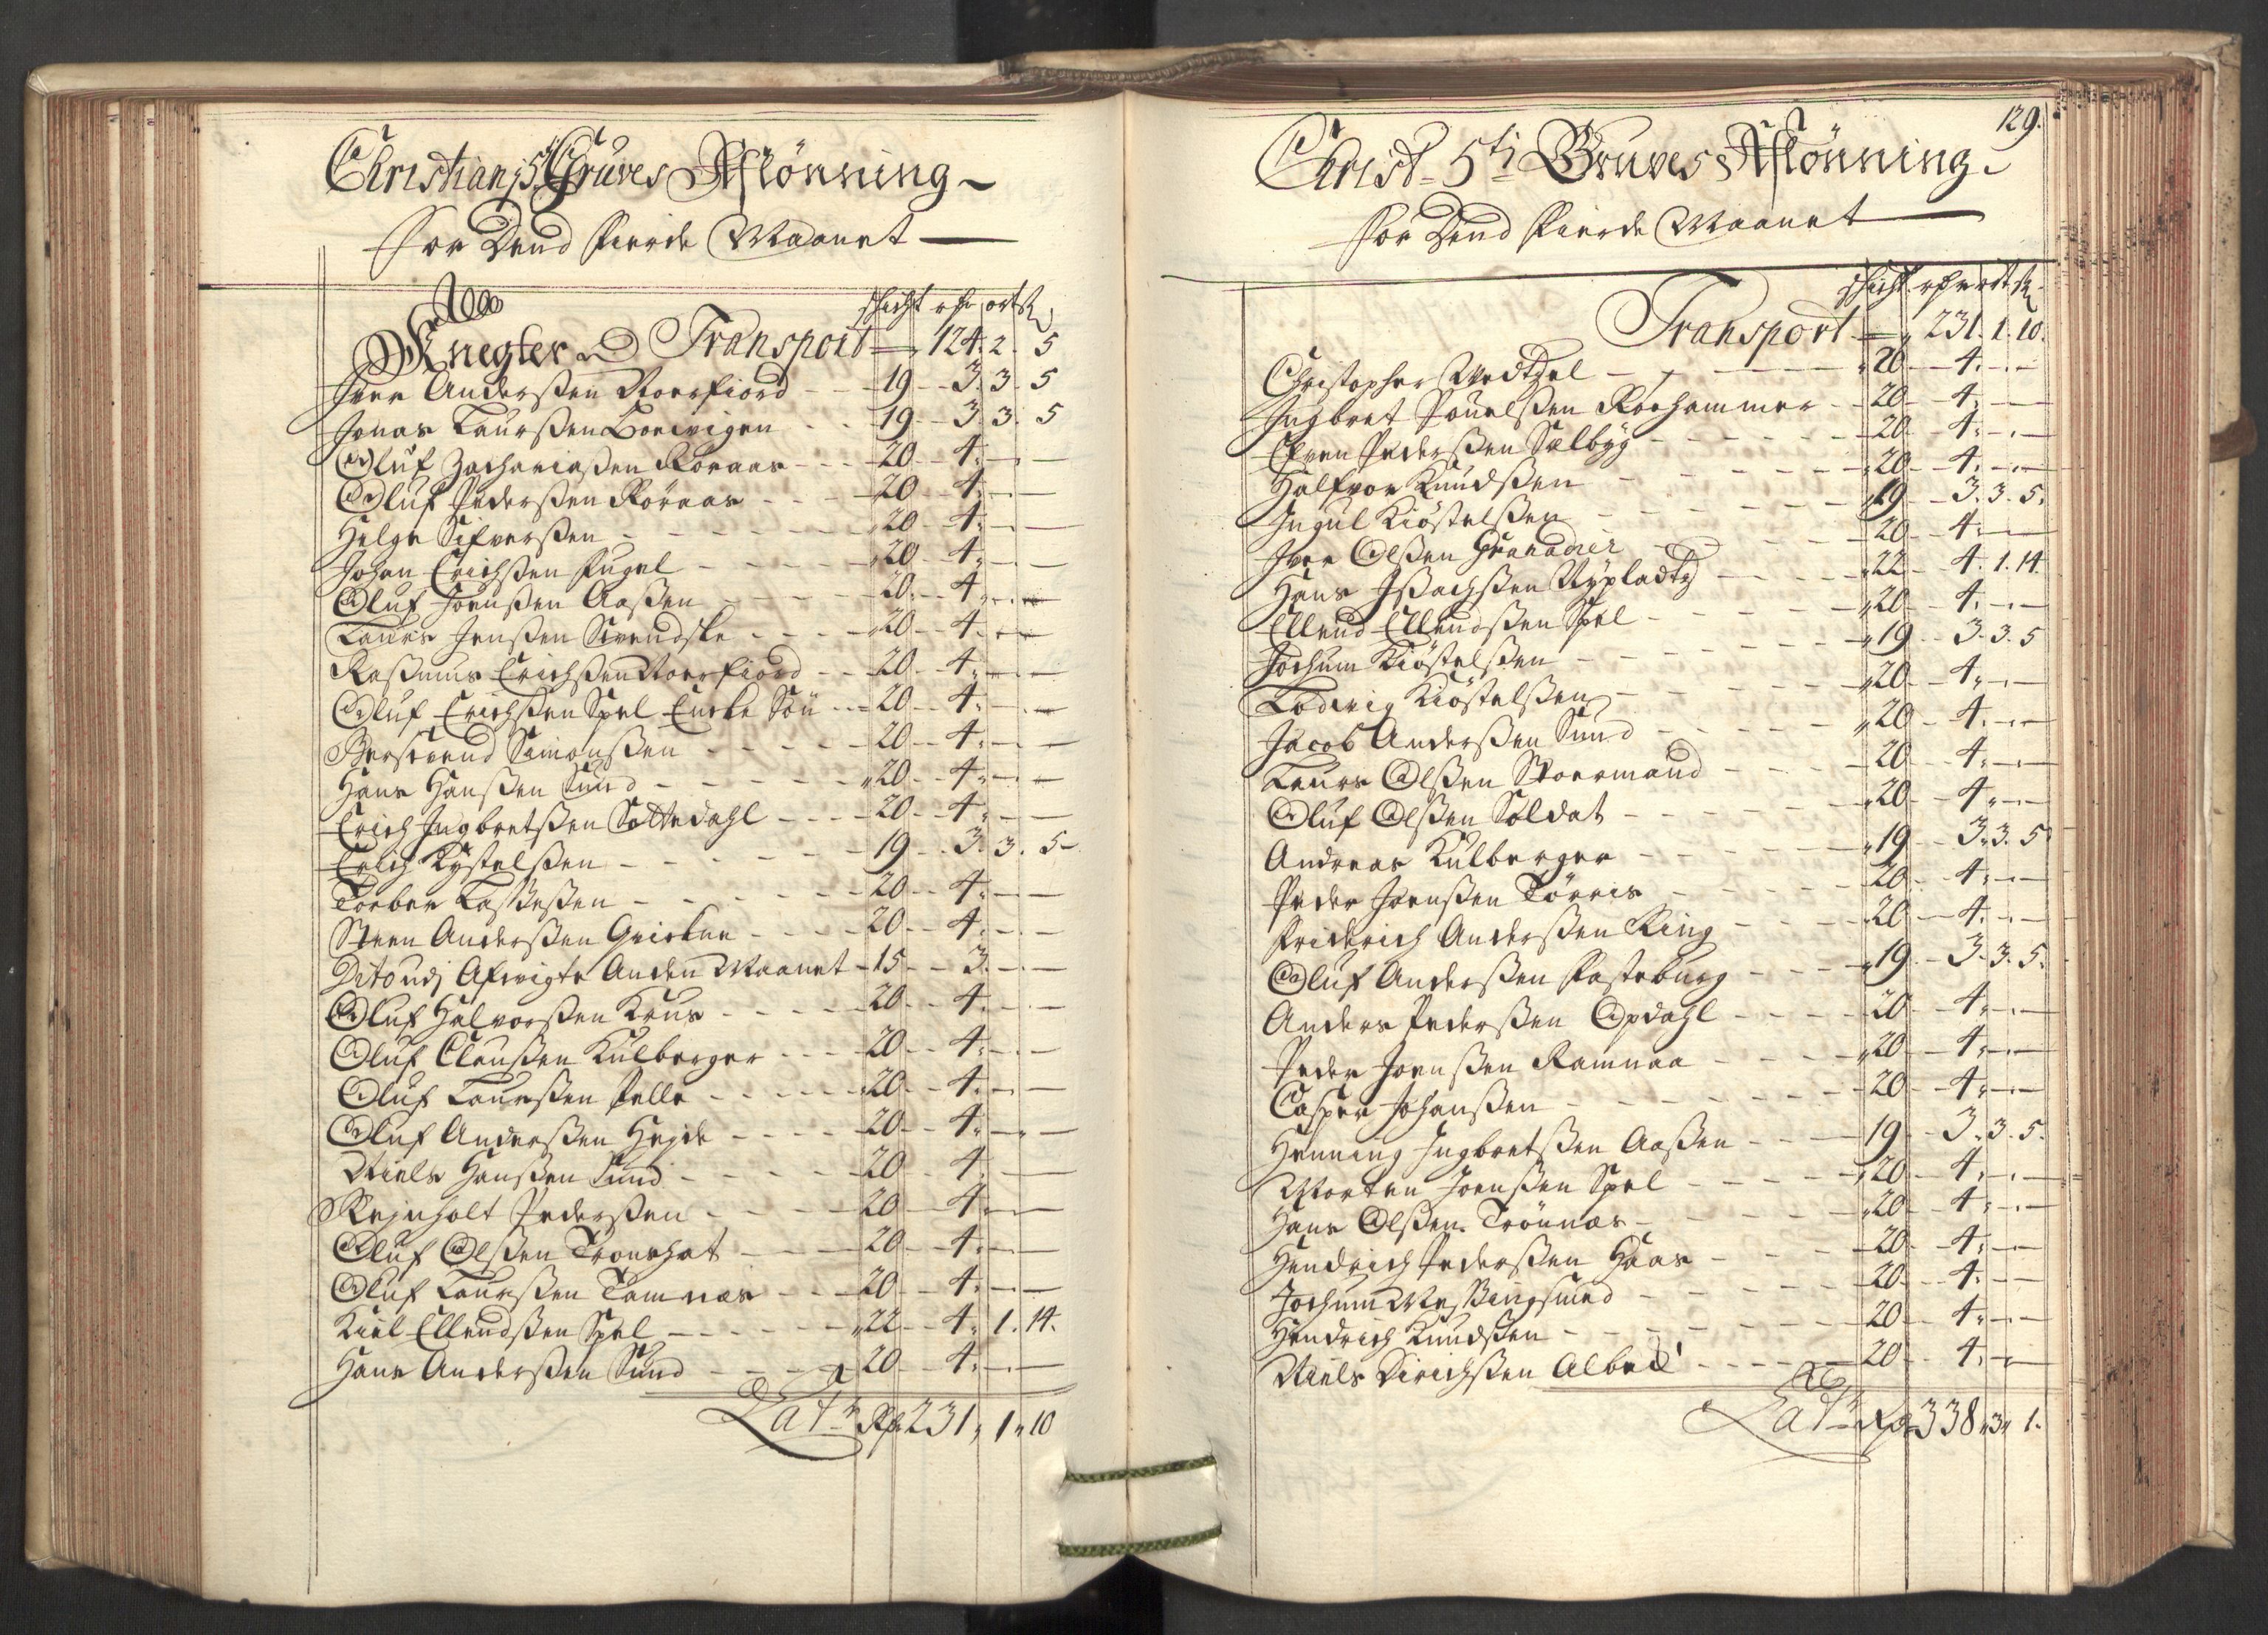 Christianj 5ti Gruves Aflönning
for Dend fierde Maanet
schicht rdr ort s
Knegter Transport 124. 2. 5
Iver Anderssen Noerfiord 19 3. 3. 5
Jonas Laurssen Borvigen 19 3. 3. 5
Oluf Zachariassen Röraas 20 4
Oluf Pederssen Röraas 20 4
Helge Sifverssen 20 4
Johan Erichssen Fugel 20 4
Oluf Joenssen Aassen 20 4
Laurs Jenssen Svendske 20 4
Rassmus Erichssen Noerfiord 20 4
Oluf Erichssen Spel Encke Sön 20 4
Bersvend Simonssen 20 4
Hans Hanssen Sund 20 4
Erich Ingbretssen Sottedahl 20 4
Erich Kystelssen 19 3. 3. 5
Torber Lassessen 20 4
Steen Anderssen Qvickne 20 4
Dito udj Afvigte Anden Maanet 15 3
Oluf Halvorssen Krus 20 4
Oluf Claussen Kulberger 20 4
Oluf Laurssen Pelle 20 4
Oluf Anderssen Hejde 20 4
Niels Hanssen Sund 20 4
Rejnholt Pederssen 20 4
Oluf Olssen Tronshat 20 4
Oluf Laurssen Tamnæs 20 4
Kiel Ellendssen Spel 22 4. 1. 14.
Hans Anderssen Sund 20 4
Lat: Rdr 231, 1, 10
129.
Christ: 5ti Gruves Aflönning
for Dend fierde Maanet
schicht rdr ort s
Transport 231. 1. 10.
Christopher Wedtzel 20 4
Ingbret Pouelssen Rorhammer 20 4
Efven Pederssen Sælbyg 20 4
Halfvor Knudssen 20 4
Ingul Kiöstelssen 19 3. 3. 5.
Iver Olssen Granadier 20 4
Hans Issachssen Nypladtz 22 4. 1. 14
Ellend Ellendssen Spel 20 4
Jochum Kiöstelssen 19 3. 3. 5
Lodvig Kiöstelssen 20 4
Jacob Anderssen Sund 20 4
Laurs Olssen Noermand 20 4
Oluf Olssen Soldat 20 4
Andreas Kulberger 19 3. 3. 5
Peder Joenssen Törris 20 4
Friderich Anderssen Ring 20 4
Oluf Anderssen Fasteburg 19 3. 3. 5.
Anders Pederssen Opdahl 20 4
Peder Joenssen Ramnaa 20 4
Casper Johanssen 20 4
Henning Ingbretssen Aassen 19 3. 3. 5.
Morten Joenssen Spel 20 4
Hans Olssen Trönnæs 20 4
Hendrich Pederssen Haas 20 4
Jochum Messingsmed 20 4
Hendrich Knudssen 20 4
Niels Dirichssen Albred 20 4
Lat: Rdr 338, 3, 1.